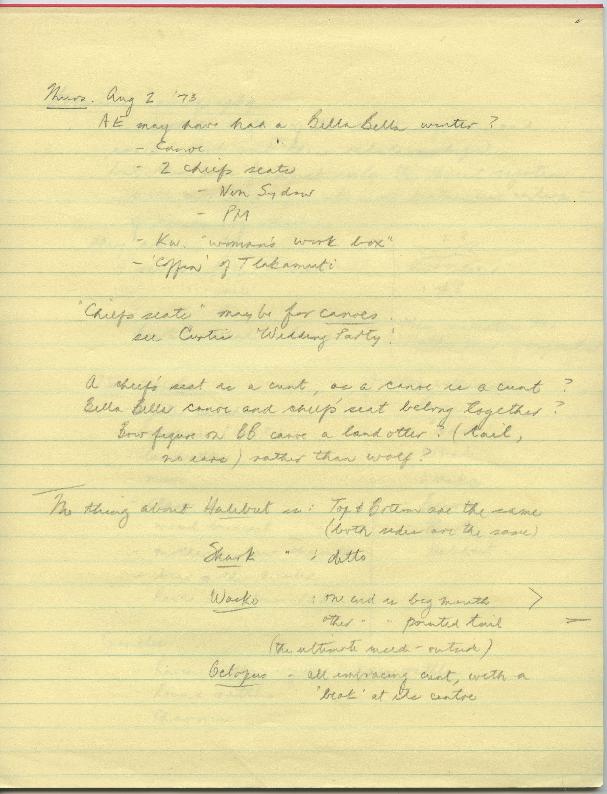 Thurs. Aug 2 '73
AE may have had a Bella Bella winter?
- Canoe
- 2 chiefs seats
- Von Sydow
- PM
- Kw. "woman's work box"
- 'Coffin' of Tlakamuti
"Chiefs seats" maybe for canoes.
see Curtis 'Wedding Party'!
A chief's seat is a cunt, as a canoe is a cunt?
Bella Bella canoe and chief's seat belong together?
Bow figure on BB canoe a land otter? (tail,
no ears) rather than wolf?
The thing about Halibut is: Top & Bottom are the same
(both sides are the same)
Shark " : ditto
Wasko : one end is big mouth >
other " " pointed tail =
(the ultimate - outside)
Octopus - all embracing cunt, with a
'beak' at its centre